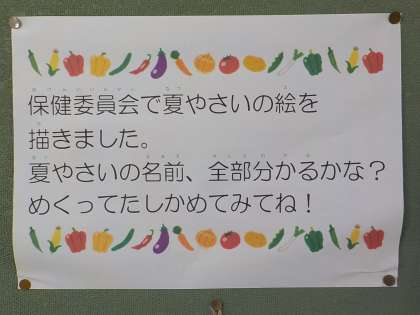 保健委員会で夏やさいの絵を
描きました。
夏やさいの名前、全部分かるかな？
めくってたしかめてみてね！